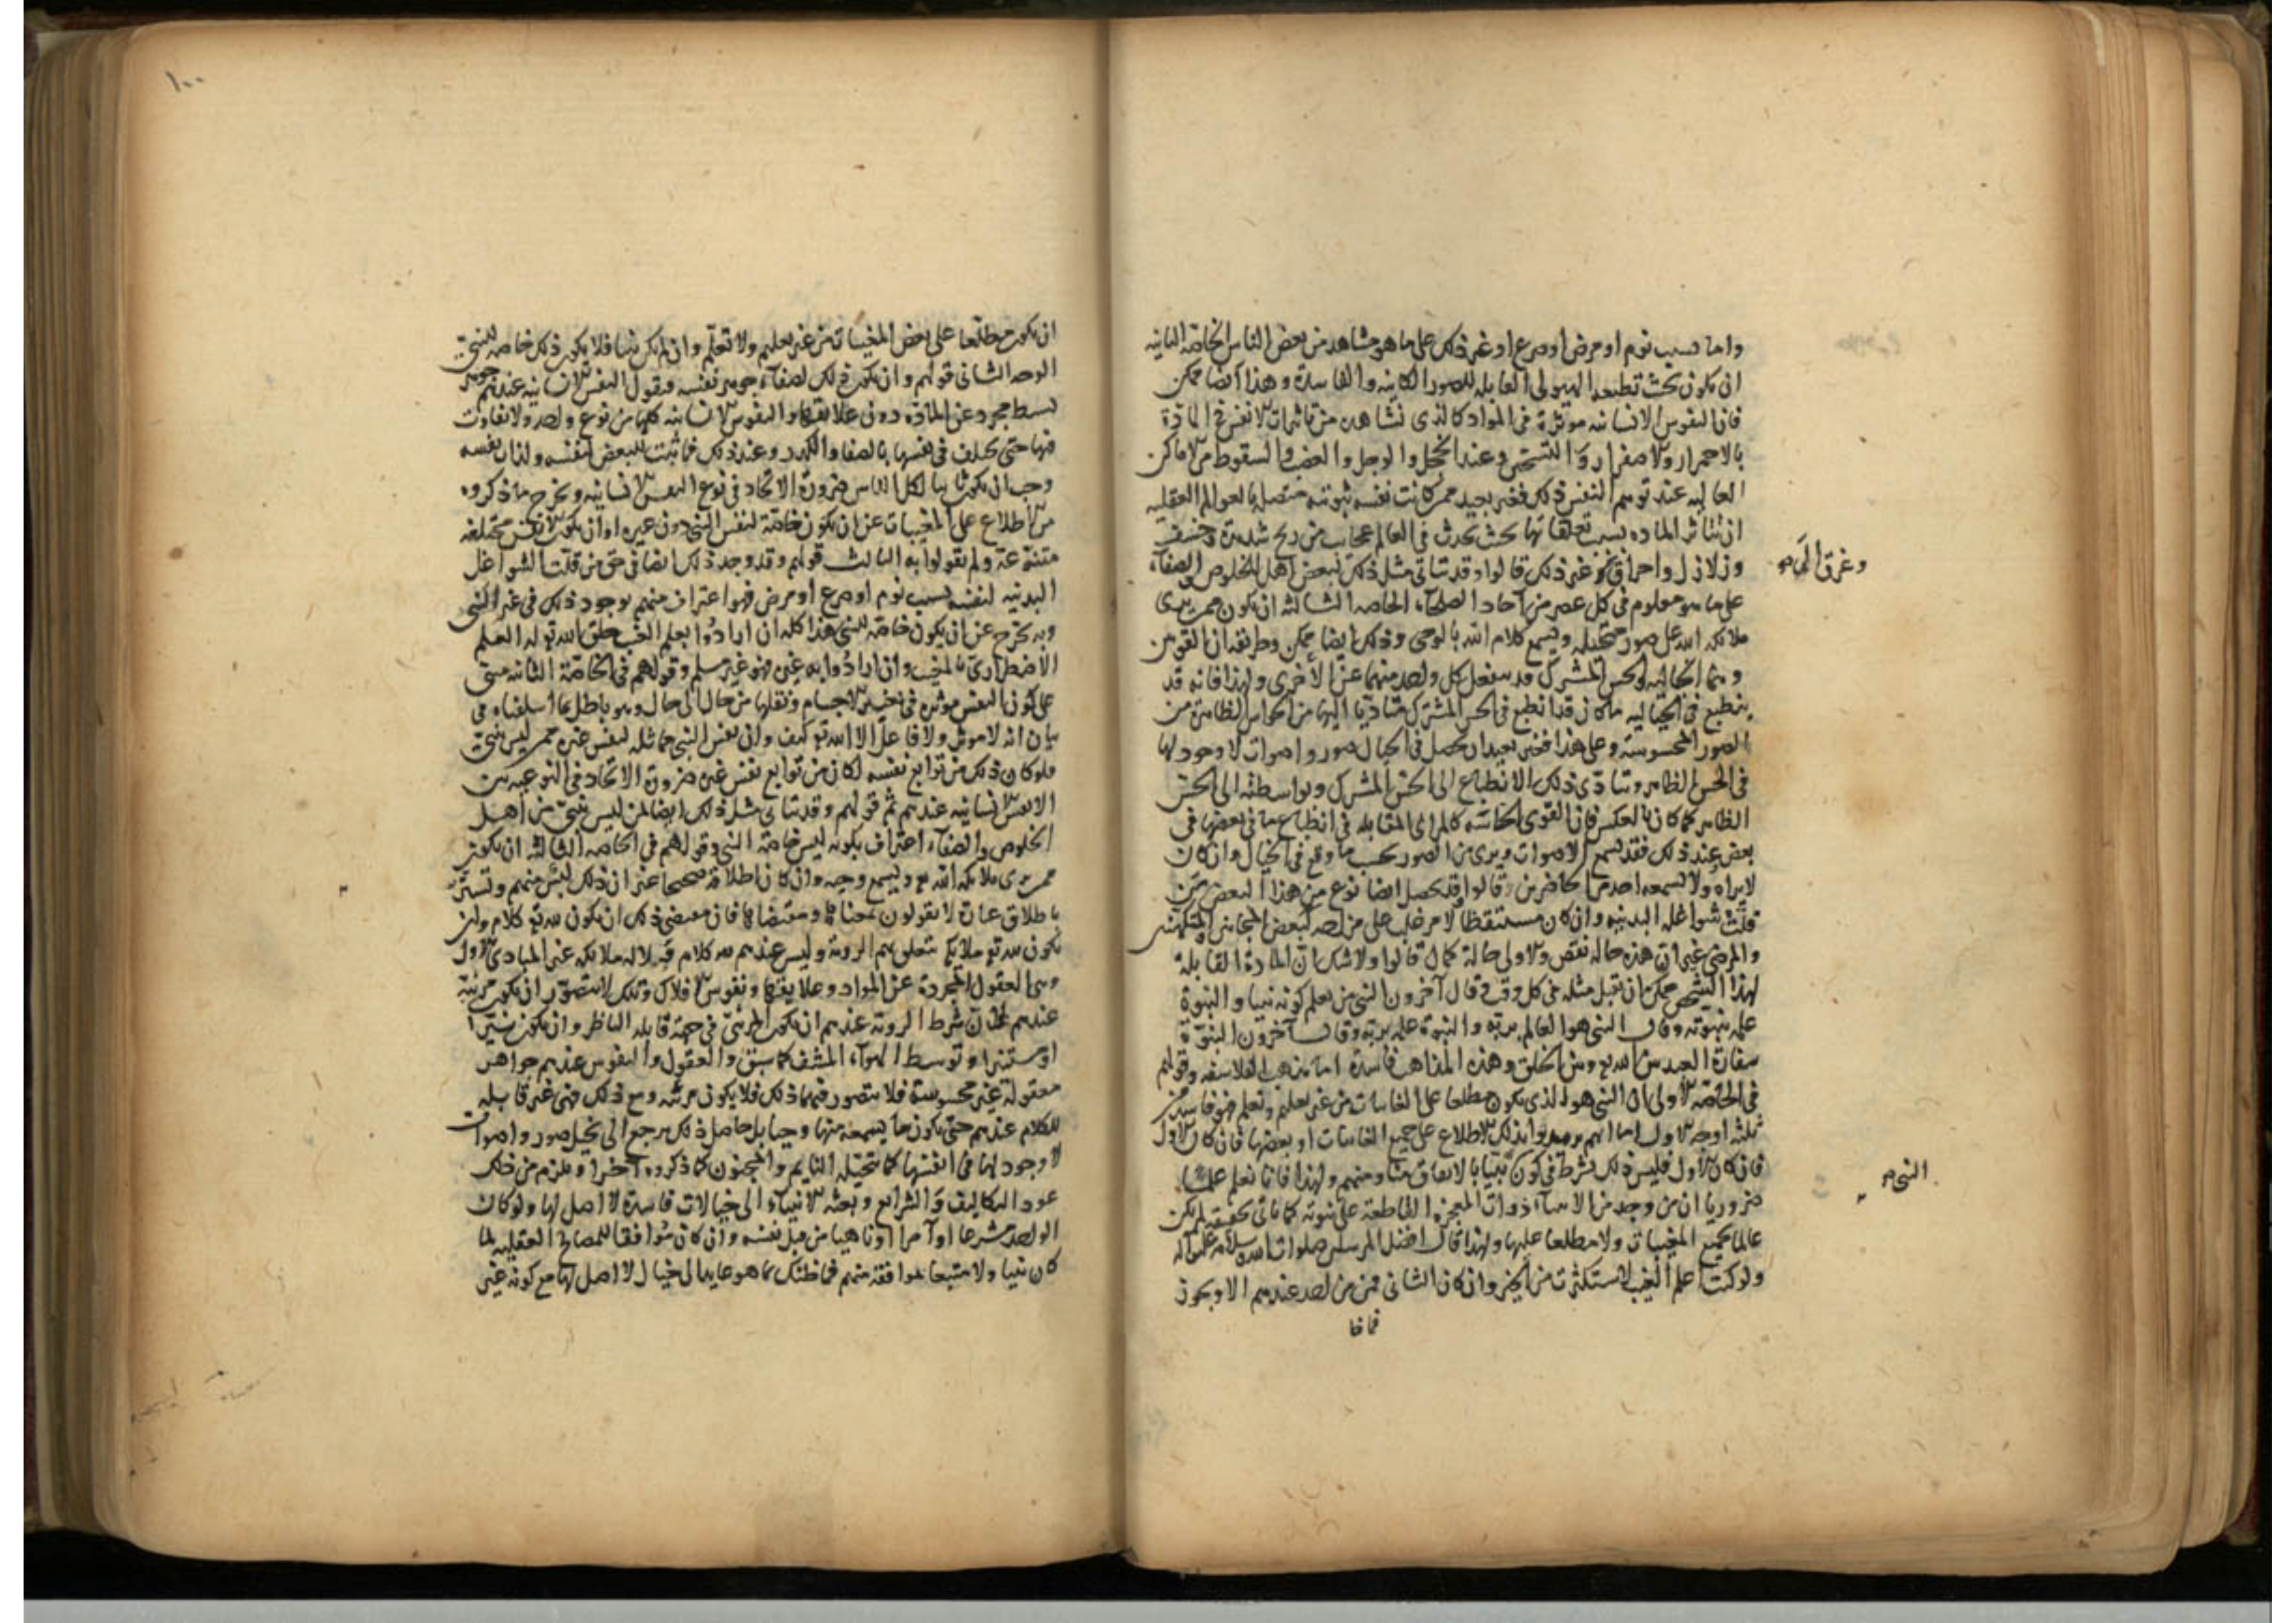 واما بسبب نوم او مرض او صرع او غير ذلك على ما هو مشاهد من بعض الناس الخاصة الثانية
ان يكون بحيث تطيعه الهيولى القابلة للصور الكاينة والفاسدة وهذا ايضا ممكن
فان النفوس الانسانية موثرة في المواد كالذي نشاهده من تاثيرات الانفس في المادة
بالاحمرار والاصفرار والتسخن وعند الخجل والوجل والغضب والسقوط من الاماكن
العالية عند توهم النفس ذلك فغير بعيد ممن كانت نفسه نبوية متصلة بالعوالم العقلية
ان تتاثر المادة بسبب تعلقاتها بحيث يحدث في العالم عجايب من ريح شديدة وخسف
وزلازل واحراق وغير ذلك قالوا وقد يتاتى مثل ذلك لبعض اهل الخلوص والصفاء
وغرق الى
على ما هو معلوم في كل عصر من آحاد الصلحاء الخاصة الثالثة ان يكون ممن يرى
ملائكة الله على صور متخيلة ويسمع كلام الله بالوحي وذلك ايضا ممكن وطريقه ان القوتين
وهما الخيالية والحس المشترك قد ينفعل كل واحد منهما عن الاخرى ولهذا فانه قد
ينطبع في الخيالية ما كان قد انطبع في الحس المشترك متاديا اليها من الحواس الظاهرة من
الصور المحسوسة وعلى هذا فغير بعيد ان يحصل في الخيال صور واصوات لا وجود لها
في الحس الظاهر وتتادى ذلك الانطباع الى الحس المشترك وبواسطته الى الحس
الظاهر كما كان بالعكس فان القوى الحاسة كالمرائي المتقابلة في انطباع ما في بعضها في
بعض فعند ذلك فقد يسمع من الاصوات ويرى من الصور بحسب ما وقع في الخيال وان كان
لا يراه ولا يسمعه احد من الحاضرين قالوا وقد يحصل ايضا نوع من هذا البعض من
قلت شواغله البدنية وان كان مستيقظا لامر غلب على مزاجه كبعض المجانين والمتكهنين
والمرضى غير ان هذه حالة نقص والاولى حالة كمال قالوا ولا شك ان المادة القابلة
لهذا الشخص ممكن ان تقبل مثله في كل وقت وقال آخرون النبي من يعلم كونه نبيا والنبوة
علمه بنبوته وقال النبي هو العالم بربه والنبوة علمه بربه وقال آخرون النبوة
سفارة العبد بين الله تع وبين الخلق وهذه المذاهب فاسدة اما مذهب الفلاسفة وقولهم
في الخاصة الاولى ان النبي هو الذي يكون مطلعا على الغايبات من غير تعليم وتعلم فهو فاسد من
ثلثة اوجه الاول اما انهم يريدوا بذلك الاطلاع على جميع الغايبات او بعضها فان كان الاول
فان كان الاول فليس ذلك بشرط في كون نبيا بالاتفاق منا ومنهم ولهذا فانا نعلم علما
النبي
ضروريا ان من وجد من الانبياء ذوات المعجزة القاطعة على نبوته كما ياتي تحقيقه لم يكن
عالما بجميع المغيبات ولا مطلعا عليها ولهذا قال افضل المرسلين صلوات الله وسلامه عليه وآله
ولو كنت اعلم الغيب لاستكثرت من الخير وان كان الثاني فمن من احد عندهم الا ويجوز
١٠٠
ان يكون مطلعا على بعض المغيبات من غير تعليم ولا تعلم وان لم يكن نبيا فلا يكون ذلك خاصة للنبي
الوجه الثاني قولهم وان يكون ذلك لصفاء جوهر نفسه فنقول النفس الانسانية عندهم جوهر
بسيط مجرد عن المادة دون علايقها والنفوس الانسانية كلها من نوع واحد ولا تفاوت
فيها حتى يختلف في نفسها بالصفا والكدر وعند ذلك فما ثبت للبعض لنفسه ولذات نفسه
وجب ان يكون ثابتا لكل الناس ضرورة الاتحاد في نوع النفس الانسانية ويخرج ما ذكروه
من الاطلاع على المغيبات عن ان يكون خاصة لنفس النبي دون غيره او ان يكون الانفس مختلفة
متنوعة ولم يقولوا به الثالث قولهم وقد وجد ذلك ايضا في حق من قلت الشواغل
البدنية لنفسه بسبب نوم او صرع او مرض فهو اعتراف منهم بوجود ذلك في غير النبي
وبه يخرج عن ان يكون خاصة للنبي هذا كله ان ارادوا بعلم الغيب خلق الله تع له العلم
الاضطراري بالمغيب وان ارادوا به غيره فهو غير مسلم وقولهم في الخاصة الثانية مبني
على كون النفس موثرة في تغيير الاجسام ونقلها من حال الى حال وهو باطل بما اسلفناه في
بيان انه لا موثر ولا فاعل الا الله تع كيف وان نفس النبي مماثلة لنفس غيره ممن ليس بنبي
فلو كان ذلك من توابع نفسه لكان من توابع نفس غيره ضرورة الاتحاد في النوعية بين
الانفس الانسانية عندهم ثم قولهم وقد يتاتى مثل ذلك ايضا لمن ليس بنبي من اهل
الخلوص والصفاء اعتراف بكونه ليس خاصة النبي وقولهم في الخاصة الثالثة ان يكون
ممن يرى ملائكة الله تع ويسمع وحيه وان كان اطلاقه صحيحا غير ان ذلك ليس منهم وتستر
باطلاق عبارة لا يقولون بمعناها ومقتضاها فان مقتضى ذلك ان يكون لله تع كلام وان
يكون لله تع ملايكة تتعلق بهم الروية وليس عندهم لله كلام ولا له ملايكة غير المبادي الاول
وهي العقول المجردة عن المواد وعلايقها ونفوس الافلاك وتلك لا يتصور ان يكون مرئية
عندهم لان شرط الروية عندهم ان يكون المرئي في جهة قابلة الناظر وان يكون نيرا
او مستنيرا وتوسط الهواء المشف كما سبق والعقول والنفوس عندهم جواهر
معقولة غير محسوسة فلا يتصور فيهما ذلك فلا يكون مرئية ومع ذلك فهي غير قابلة
للكلام عندهم حتى يكون ما يسمعه منها وحيا بل حاصل ذلك يرجع الى تخيل صور واصوات
لا وجود لها في انفسها كما يتخيله النايم والمجنون كما ذكروه آخرا ويلزم من ذلك
عود التكاليف والشرايع وبعثة الانبياء الى خيالات فاسدة لا اصل لها ولو كان
الواحد مشرعا او آمرا او ناهيا من قبل نفسه وان كان موافقا للمصالح العقلية لما
كان نبيا ولا متبعا بموافقة منهم فما ظنك بما هو عايد الى خيال لا اصل لها مع كونه غير